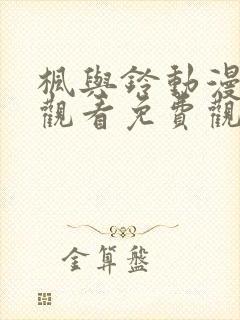 楓與鈴動漫
觀看免費觀
金算盤